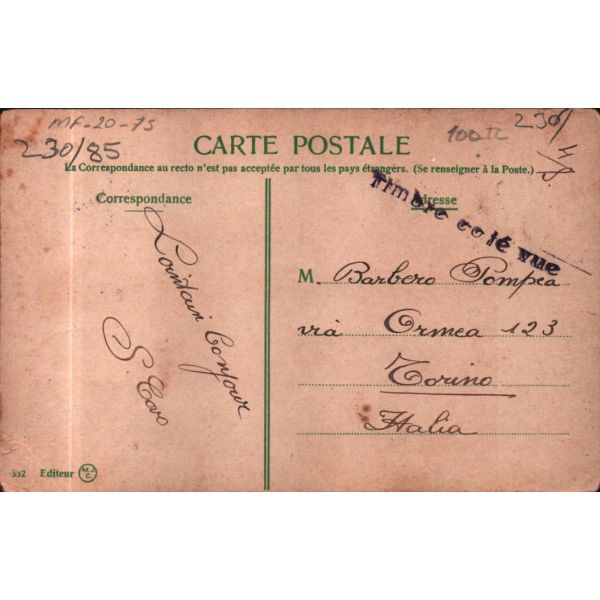 MF-20-75
230/85
100TL
230/
CARTE POSTALE
La Correspondance au recto n'est pas acceptée par tous les pays étrangers. (Se renseigner à la Poste.)
Correspondance
Adresse
Timbre coté vue
Lointain Bonjour
M. Barbero Pompea
via Ormea 123
Torino
Italia
352 Editeur MJC